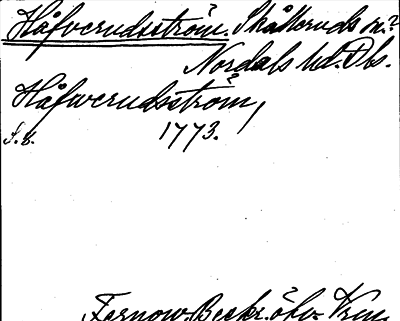 Håfverudsström. Skålleruds sn?
Nordals hd. Dls.
Håfwerudsström,
1773.
S. 8.
Fernow, Beskr. öfv. Vrm.